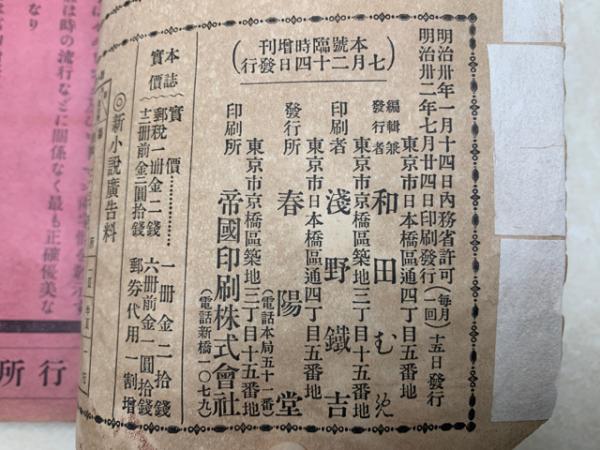 明治卅年一月十四日內務省許可(每月一回)十五日發行
明治卅二年七月廿四日印刷發行
東京市日本橋區通四丁目五番地
編輯兼發行者 和田む
東京市京橋區築地三丁目十五番地
印刷者 淺野鐵吉
東京市日本橋區通四丁目五番地
發行所 春陽堂
(電話本局五十一番)
東京市京橋區築地三丁目十五番地
印刷所 帝國印刷株式會社
(電話新橋一〇七九)
(本號臨時增刊七月二十四日發行)
本誌實價
實價 一冊金二拾錢
郵稅一冊金二錢 六冊前金一圓拾錢
十二冊前金二圓拾錢 郵券代用一割增
◎新小說廣告料
は時の流行などに關係なく最も正確優美な
なり
所行